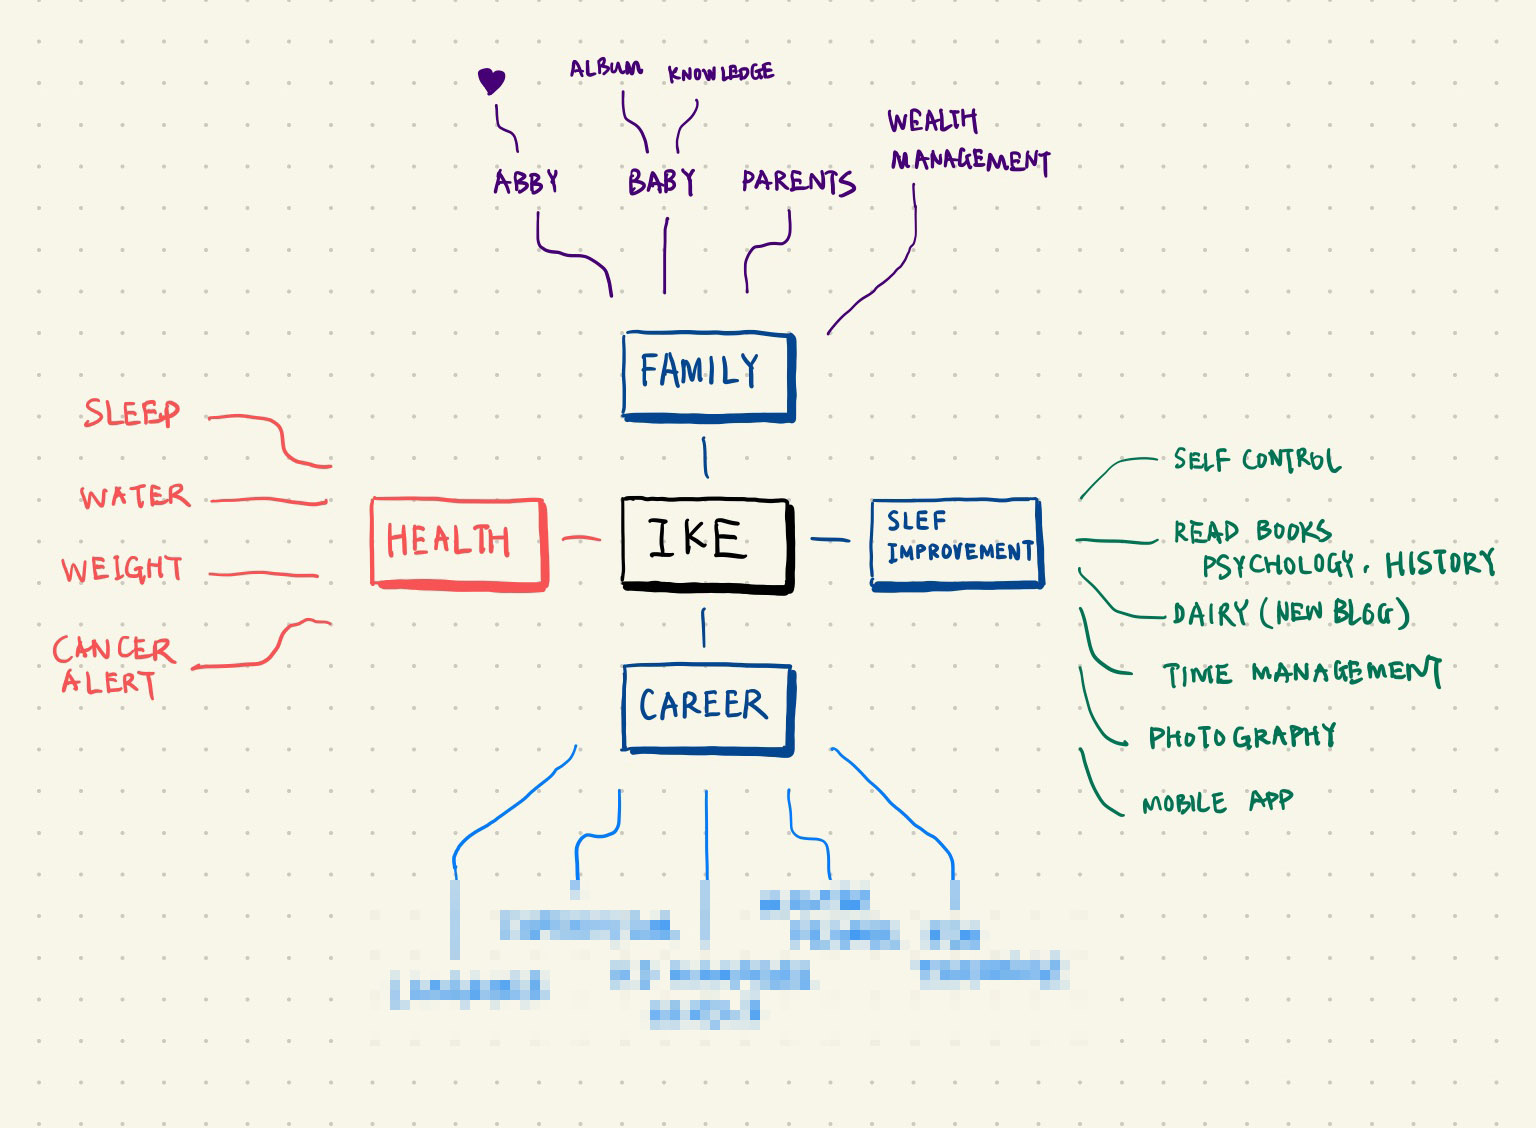 ALBUM
KNOWLEDGE
WEALTH
MANAGEMENT
ABBY
BABY
PARENTS
FAMILY
SLEEP
WATER
WEIGHT
CANCER
ALERT
HEALTH
IKE
SLEF
IMPROVEMENT
SELF CONTROL
READ BOOKS
PSYCHOLOGY, HISTORY
DAIRY (NEW BLOG)
TIME MANAGEMENT
PHOTOGRAPHY
MOBILE APP
CAREER